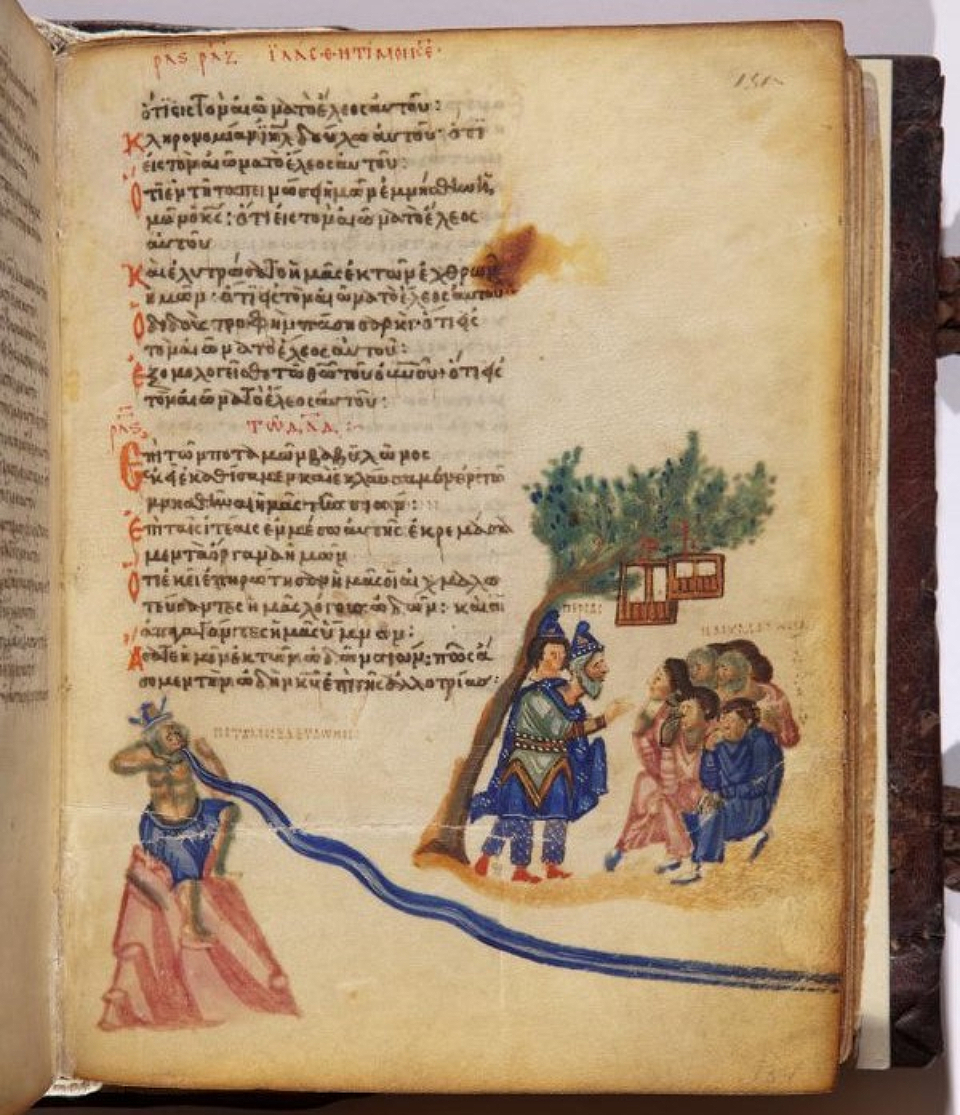 ρλϛ ρλζ
ὅτι εἰς τὸν αἰῶνα τὸ ἔλεος αὐτοῦ:
Κληρονομίαν ἰηλ δούλω αὐτοῦ· ὅτι
εἰς τὸν αἰῶνα τὸ ἔλεος αὐτοῦ:
Ὅτι ἐν τῆ ταπεινώσει ἡμῶν ἐμνήσθη ἡ
μῶν ὁ κς: ὅτι εἰς τὸν αἰῶνα τὸ ἔλεος
αὐτοῦ
Καὶ ἐλυτρώσατο ἡμᾶς ἐκ τῶν ἐχθρῶν
ἡμῶν· ὅτι εἰς τὸν αἰῶνα τὸ ἔλεος αὐτοῦ
Ὁ διδοὺς τροφὴν πάση σαρκί· ὅτι εἰς
τὸν αἰῶνα τὸ ἔλεος αὐτοῦ:
Ἐξομολογεῖσθε τῶ θῶ τοῦ οὐνοῦ· ὅτι εἰς
τὸν αἰῶνα τὸ ἔλεος αὐτοῦ:
ρλϛ τῶ δαδ:
Ἐπὶ τῶν ποταμῶν βαβυλῶνος
ἐκεῖ ἐκαθίσαμεν καὶ ἐκλαύσαμεν ἐν τῶ
μνησθῆναι ἡμᾶς τῆς σιών:
Ἐπὶ ταῖς ἰτέαις ἐμ μέσω αὐτῆς ἐκρεμάσα
μεν τὰ ὄργανα ἡμῶν
Ὅτι ἐκεῖ ἐπηρώτησαν ἡμᾶς οἱ αἰχμαλω
τεύσαντες ἡμᾶς λόγους ὠδῶν: καὶ οἱ
ἀπαγαγόντες ἡμᾶς ὕμνον:
Ἄσατε ἡμῖν ἐκ τῶν ὠδῶν σιών: πῶς ἄ
σομεν τὴν ὠδὴν κυ ἐπὶ γῆς ἀλλοτρίας: